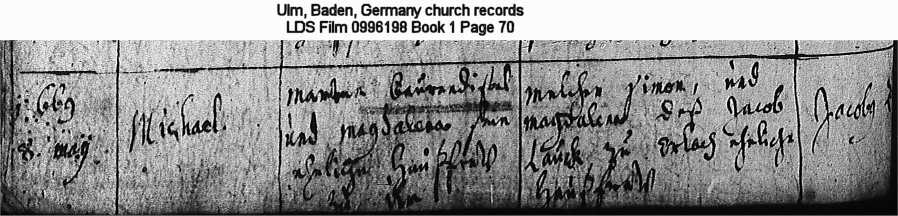 Ulm, Baden, Germany church records
LDS Film 0996198 Book 1 Page 70
1669
8. maÿ
Michael.
und magdalena sein
eheliche Haußfraw
melcher Simon, und
magdalena deß Jacob
Lauck zu Erlach eheliche
Haußfraw
Jacoby